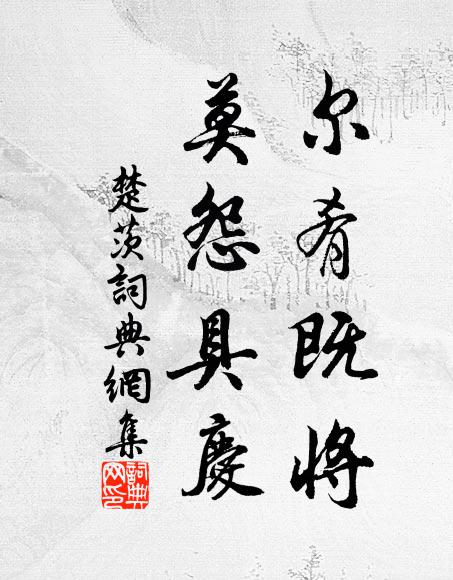 尔肴既将
莫怨具慶
楚茨詞典網集
詞典网印